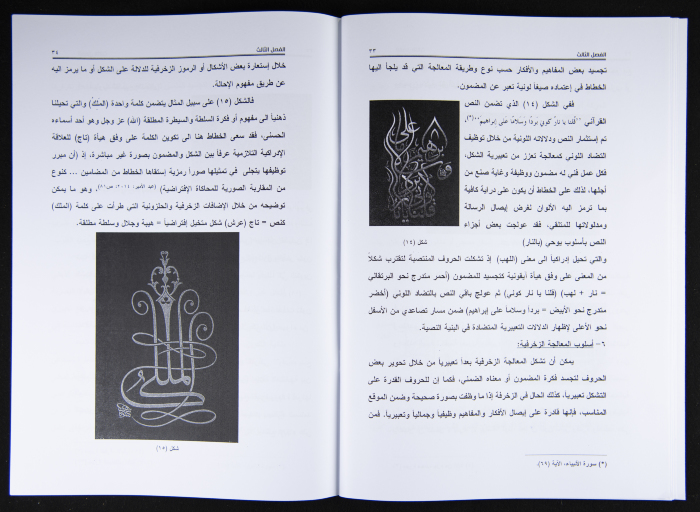 الفصل الثالث
٣٣
تجسيد بعض المفاهيم والأفكار حسب نوع وطريقة المعالجة التي قد يلجأ اليها
الخطاط في إعتماده صيغاً لونية تعبر عن المضمون.
ففي الشكل (١٤) الذي تضمن النص
القرآني "قُلنَا يا نارُ كُوني بَرْداً وسَلاماً على إبراهيمَ"(*)،
تم إستثمار النص ودلالاته اللونية من خلال توظيف
التضاد اللوني كمعالجة تعزز من تعبيرية الشكل،
فكل عمل فني له مضمون ووظيفة وغاية صنع من
أجلها، لذلك على الخطاط أن يكون على دراية كافية
بما ترمز اليه الألوان لغرض إيصال الرسالة
ومدلولاتها للمتلقي، فقد عولجت بعض أجزاء
النص بأسلوب يوحي (بالنار)
شكل (١٤)
والتي تحيل إدراكياً الى معنى (اللهب) إذ تشكلت الحروف المنتصبة لتقترب شكلاً
من المعنى على وفق هيأة أيقونية كتجسيد للمضمون (أحمر متدرج نحو البرتقالي
= نار + لهب) (قلنا يا نار كوني) ثم عولج باقي النص بالتضاد اللوني (أخضر
متدرج نحو الأبيض = برداً وسلاماً على إبراهيم) ضمن مسار تصاعدي من الأسفل
نحو الأعلى لإظهار الدلالات التعبيرية المتضادة في البنية النصية.
٦- أسلوب المعالجة الزخرفية:
يمكن أن تشكل المعالجة الزخرفية بعداً تعبيرياً من خلال تحوير بعض
الحروف لتجسد فكرة المضمون أو معناه الضمني، فكما إن للحروف القدرة على
التشكل تعبيرياً، كذلك الحال في الزخرفة إذا ما وظفت بصورة صحيحة وضمن الموقع
المناسب، فإنها قادرة على إيصال الأفكار والمفاهيم وظيفياً وجمالياً وتعبيرياً. فمن
(*) سورة الأنبياء، الآية (٦٩).
الفصل الثالث
٣٤
خلال إستعارة بعض الأشكال أو الرموز الزخرفية للدلالة على الشكل أو ما يرمز اليه
عن طريق مفهوم الإحالة.
فالشكل (١٥) على سبيل المثال يتضمن كلمة واحدة (الملك) والتي تحيلنا
ذهنياً الى مفهوم أو فكرة السلطة والسيطرة المطلقة (الله) عز وجل وهو أحد أسماءه
الحسنى، فقد سعى الخطاط هنا الى تكوين الكلمة على وفق هيأة (تاج) للعلاقة
الإدراكية التلازمية عرفاً بين الشكل والمضمون بصورة غير مباشرة، إذ (أن مبرر
توظيفها يتجلى في تمثيلها صوراً رمزية إستقاها الخطاط من المضامين ... كنوع
من المقاربة الصورية للمحاكاة الإفتراضية) (عبد الأمير، ٢٠١٤، ص٨١)، وهو ما يمكن
توضيحه من خلال الإضافات الزخرفية والحلزونية التي طرأت على كلمة (الملك)
كنص = تاج (عرش) شكل متخيل إفتراضياً = هيبة وجلال وسلطة مطلقة.
الملك
شكل (١٥)